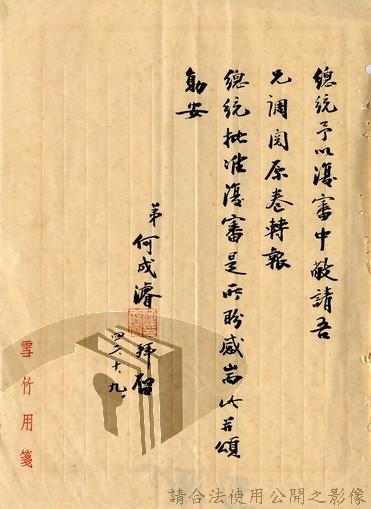 總統予以復審中敬請吾
兄調閱原卷轉報
總統批准復審是所盼感耑此敬頌
勛安
弟何成濬拜啓
四六、十、九、
雪竹用箋
請合法使用公開之影像